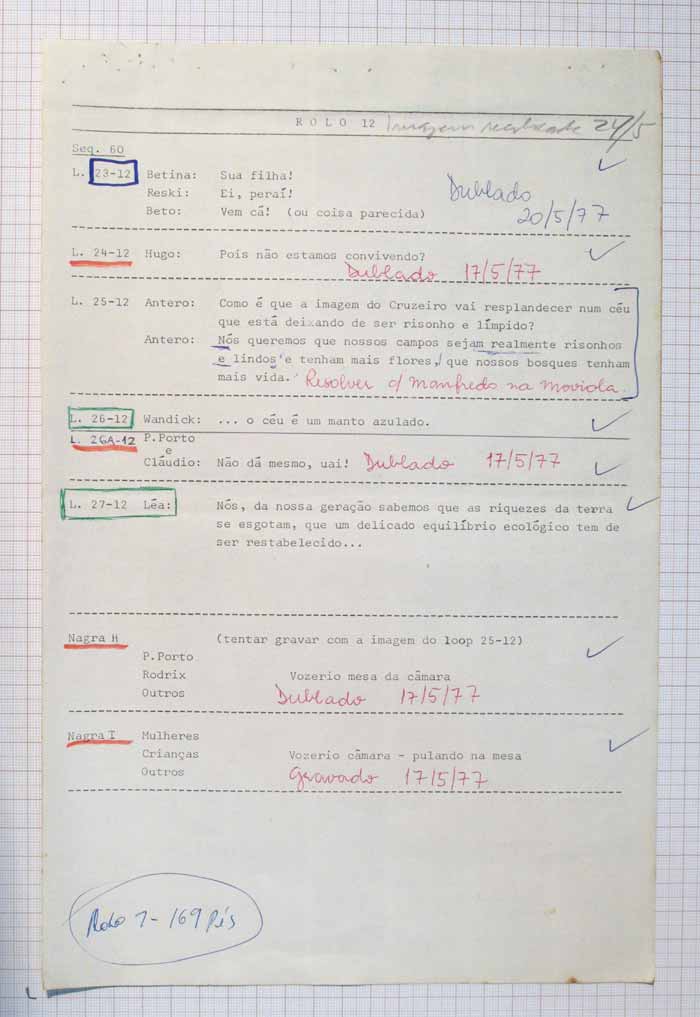 ROLO 12 Imagem 24/5
Seq. 60
L. 23-12 Betina: Sua filha!
Reski: Ei, peraí!
Dublado
Beto: Vem cá! (ou coisa parecida)
20/5/77
L. 24-12 Hugo: Pois não estamos convivendo?
Dublado 17/5/77
L. 25-12 Antero: Como é que a imagem do Cruzeiro vai resplandecer num céu
que está deixando de ser risonho e límpido?
Antero: Nós queremos que nossos campos sejam realmente risonhos
e lindos e tenham mais flores, que nossos bosques tenham
mais vida. Resolver c/ Manfredo na moviola.
L. 26-12 Wandick: ... o céu é um manto azulado.
L. 26A-12 P.Porto
e
Cláudio: Não dá mesmo, uai! Dublado 17/5/77
L. 27-12 Léa: Nós, da nossa geração sabemos que as riquezes da terra
se esgotam, que um delicado equilíbrio ecológico tem de
ser restabelecido...
Nagra H (tentar gravar com a imagem do loop 25-12)
P.Porto
Rodrix Vozerio mesa da câmara
Outros Dublado 17/5/77
Nagra I Mulheres
Crianças Vozerio câmara - pulando na mesa
Outros Gravado 17/5/77
Rolo 7 - 169 Pés